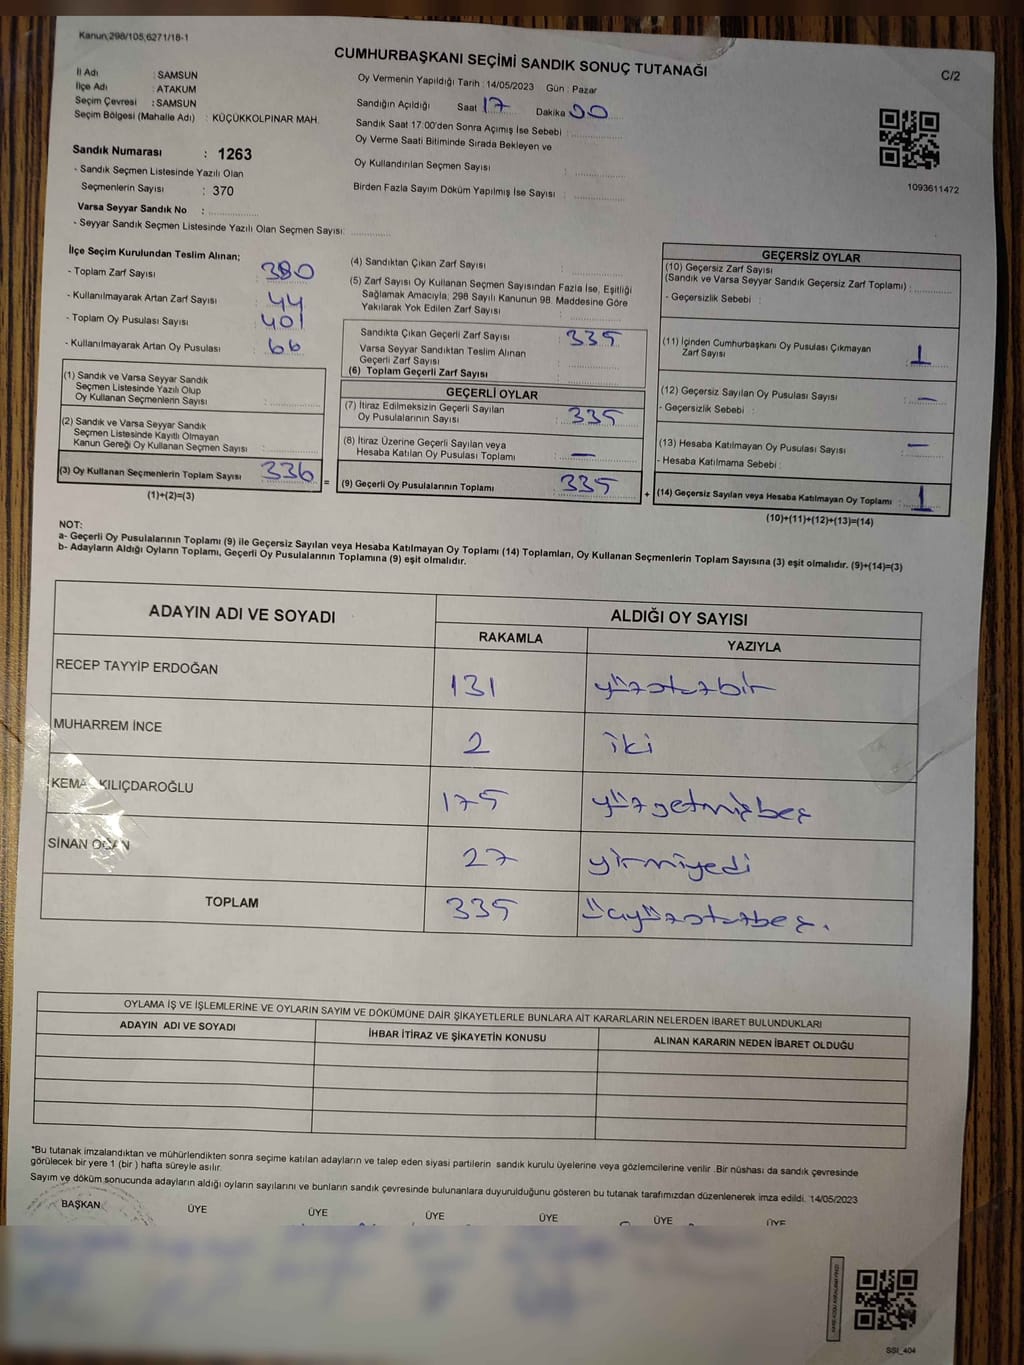 Kanun,298/105,6271/18-1
CUMHURBAŞKANI SEÇİMİ SANDIK SONUÇ TUTANAĞI
C/2
İl Adı : SAMSUN
İlçe Adı : ATAKUM
Seçim Çevresi : SAMSUN
Seçim Bölgesi (Mahalle Adı) : KÜÇÜKKOLPINAR MAH.
Oy Vermenin Yapıldığı Tarih : 14/05/2023 Gün : Pazar
Sandığın Açıldığı Saat 17 Dakika 00
Sandık Saat 17:00'den Sonra Açımış İse Sebebi :
Oy Verme Saati Bitiminde Sırada Bekleyen ve
Oy Kullandırılan Seçmen Sayısı :
Birden Fazla Sayım Döküm Yapılmış İse Sayısı :
1093611472
Sandık Numarası : 1263
- Sandık Seçmen Listesinde Yazılı Olan
Seçmenlerin Sayısı : 370
Varsa Seyyar Sandık No :
- Seyyar Sandık Seçmen Listesinde Yazılı Olan Seçmen Sayısı:
İlçe Seçim Kurulundan Teslim Alınan;
- Toplam Zarf Sayısı : 380
- Kullanılmayarak Artan Zarf Sayısı : 44
- Toplam Oy Pusulası Sayısı : 401
- Kullanılmayarak Artan Oy Pusulası : 66
(1) Sandık ve Varsa Seyyar Sandık
Seçmen Listesinde Yazılı Olup
Oy Kullanan Seçmenlerin Sayısı :
(2) Sandık ve Varsa Seyyar Sandık
Seçmen Listesinde Kayıtlı Olmayan
Kanun Gereği Oy Kullanan Seçmen Sayısı :
(3) Oy Kullanan Seçmenlerin Toplam Sayısı : 336
(1)+(2)=(3)
(4) Sandıktan Çıkan Zarf Sayısı :
(5) Zarf Sayısı Oy Kullanan Seçmen Sayısından Fazla İse, Eşitliği
Sağlamak Amacıyla; 298 Sayılı Kanunun 98. Maddesine Göre
Yakılarak Yok Edilen Zarf Sayısı :
Sandıkta Çıkan Geçerli Zarf Sayısı : 335
Varsa Seyyar Sandıktan Teslim Alınan
Geçerli Zarf Sayısı :
(6) Toplam Geçerli Zarf Sayısı :
GEÇERLİ OYLAR
(7) İtiraz Edilmeksizin Geçerli Sayılan
Oy Pusulalarının Sayısı : 335
(8) İtiraz Üzerine Geçerli Sayılan veya
Hesaba Katılan Oy Pusulası Toplamı : —
= (9) Geçerli Oy Pusulalarının Toplamı : 335
GEÇERSİZ OYLAR
(10) Geçersiz Zarf Sayısı
(Sandık ve Varsa Seyyar Sandık Geçersiz Zarf Toplamı) :
- Geçersizlik Sebebi :
(11) İçinden Cumhurbaşkanı Oy Pusulası Çıkmayan
Zarf Sayısı : 1
(12) Geçersiz Sayılan Oy Pusulası Sayısı : —
- Geçersizlik Sebebi :
(13) Hesaba Katılmayan Oy Pusulası Sayısı : —
- Hesaba Katılmama Sebebi :
+ (14) Geçersiz Sayılan veya Hesaba Katılmayan Oy Toplamı : 1
(10)+(11)+(12)+(13)=(14)
NOT:
a- Geçerli Oy Pusulalarının Toplamı (9) ile Geçersiz Sayılan veya Hesaba Katılmayan Oy Toplamı (14) Toplamları, Oy Kullanan Seçmenlerin Toplam Sayısına (3) eşit olmalıdır. (9)+(14)=(3)
b- Adayların Aldığı Oyların Toplamı, Geçerli Oy Pusulalarının Toplamına (9) eşit olmalıdır.
ADAYIN ADI VE SOYADI
ALDIĞI OY SAYISI
RAKAMLA YAZIYLA
RECEP TAYYİP ERDOĞAN 131 yüzotuzbir
MUHARREM İNCE 2 iki
KEMA KILIÇDAROĞLU 175 yüzyetmişbeş
SİNAN OĞAN 27 yirmiyedi
TOPLAM 335 üçyüzotuzbeş.
OYLAMA İŞ VE İŞLEMLERİNE VE OYLARIN SAYIM VE DÖKÜMÜNE DAİR ŞİKAYETLERLE BUNLARA AİT KARARLARIN NELERDEN İBARET BULUNDUKLARI
ADAYIN ADI VE SOYADI İHBAR İTİRAZ VE ŞİKAYETİN KONUSU ALINAN KARARIN NEDEN İBARET OLDUĞU
*Bu tutanak imzalandıktan ve mühürlendikten sonra seçime katılan adayların ve talep eden siyasi partilerin sandık kurulu üyelerine veya gözlemcilerine verilir .Bir nüshası da sandık çevresinde
görülecek bir yere 1 (bir ) hafta süreyle asılır.
Sayım ve döküm sonucunda adayların aldığı oyların sayılarını ve bunların sandık çevresinde bulunanlara duyurulduğunu gösteren bu tutanak tarafımızdan düzenlenerek imza edildi. 14/05/2023
BAŞKAN ÜYE ÜYE ÜYE ÜYE ÜYE ÜYE
SSI_404